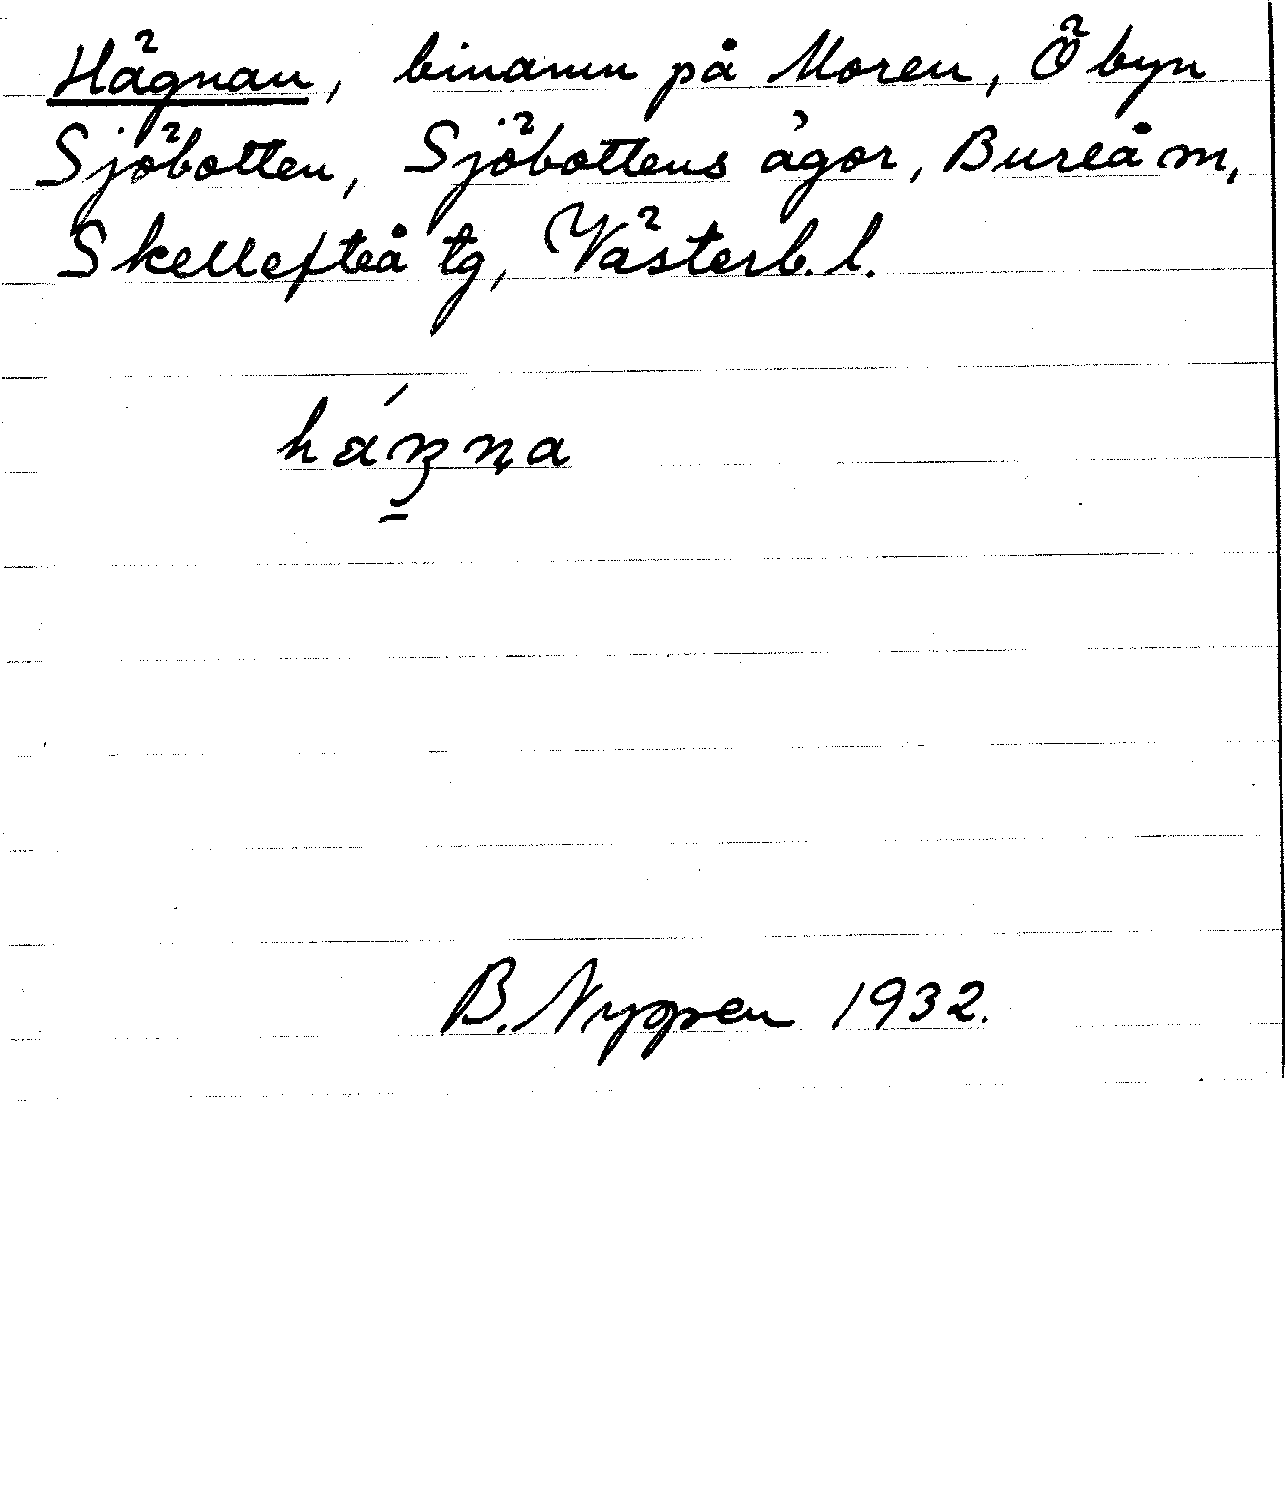 Hägnan, binamn på Moren, Ö byn
Sjöbotten, Sjöbottens ägor, Bureå m,
Skellefteå tg, Västerb. l.
B. Nyppen 1932.